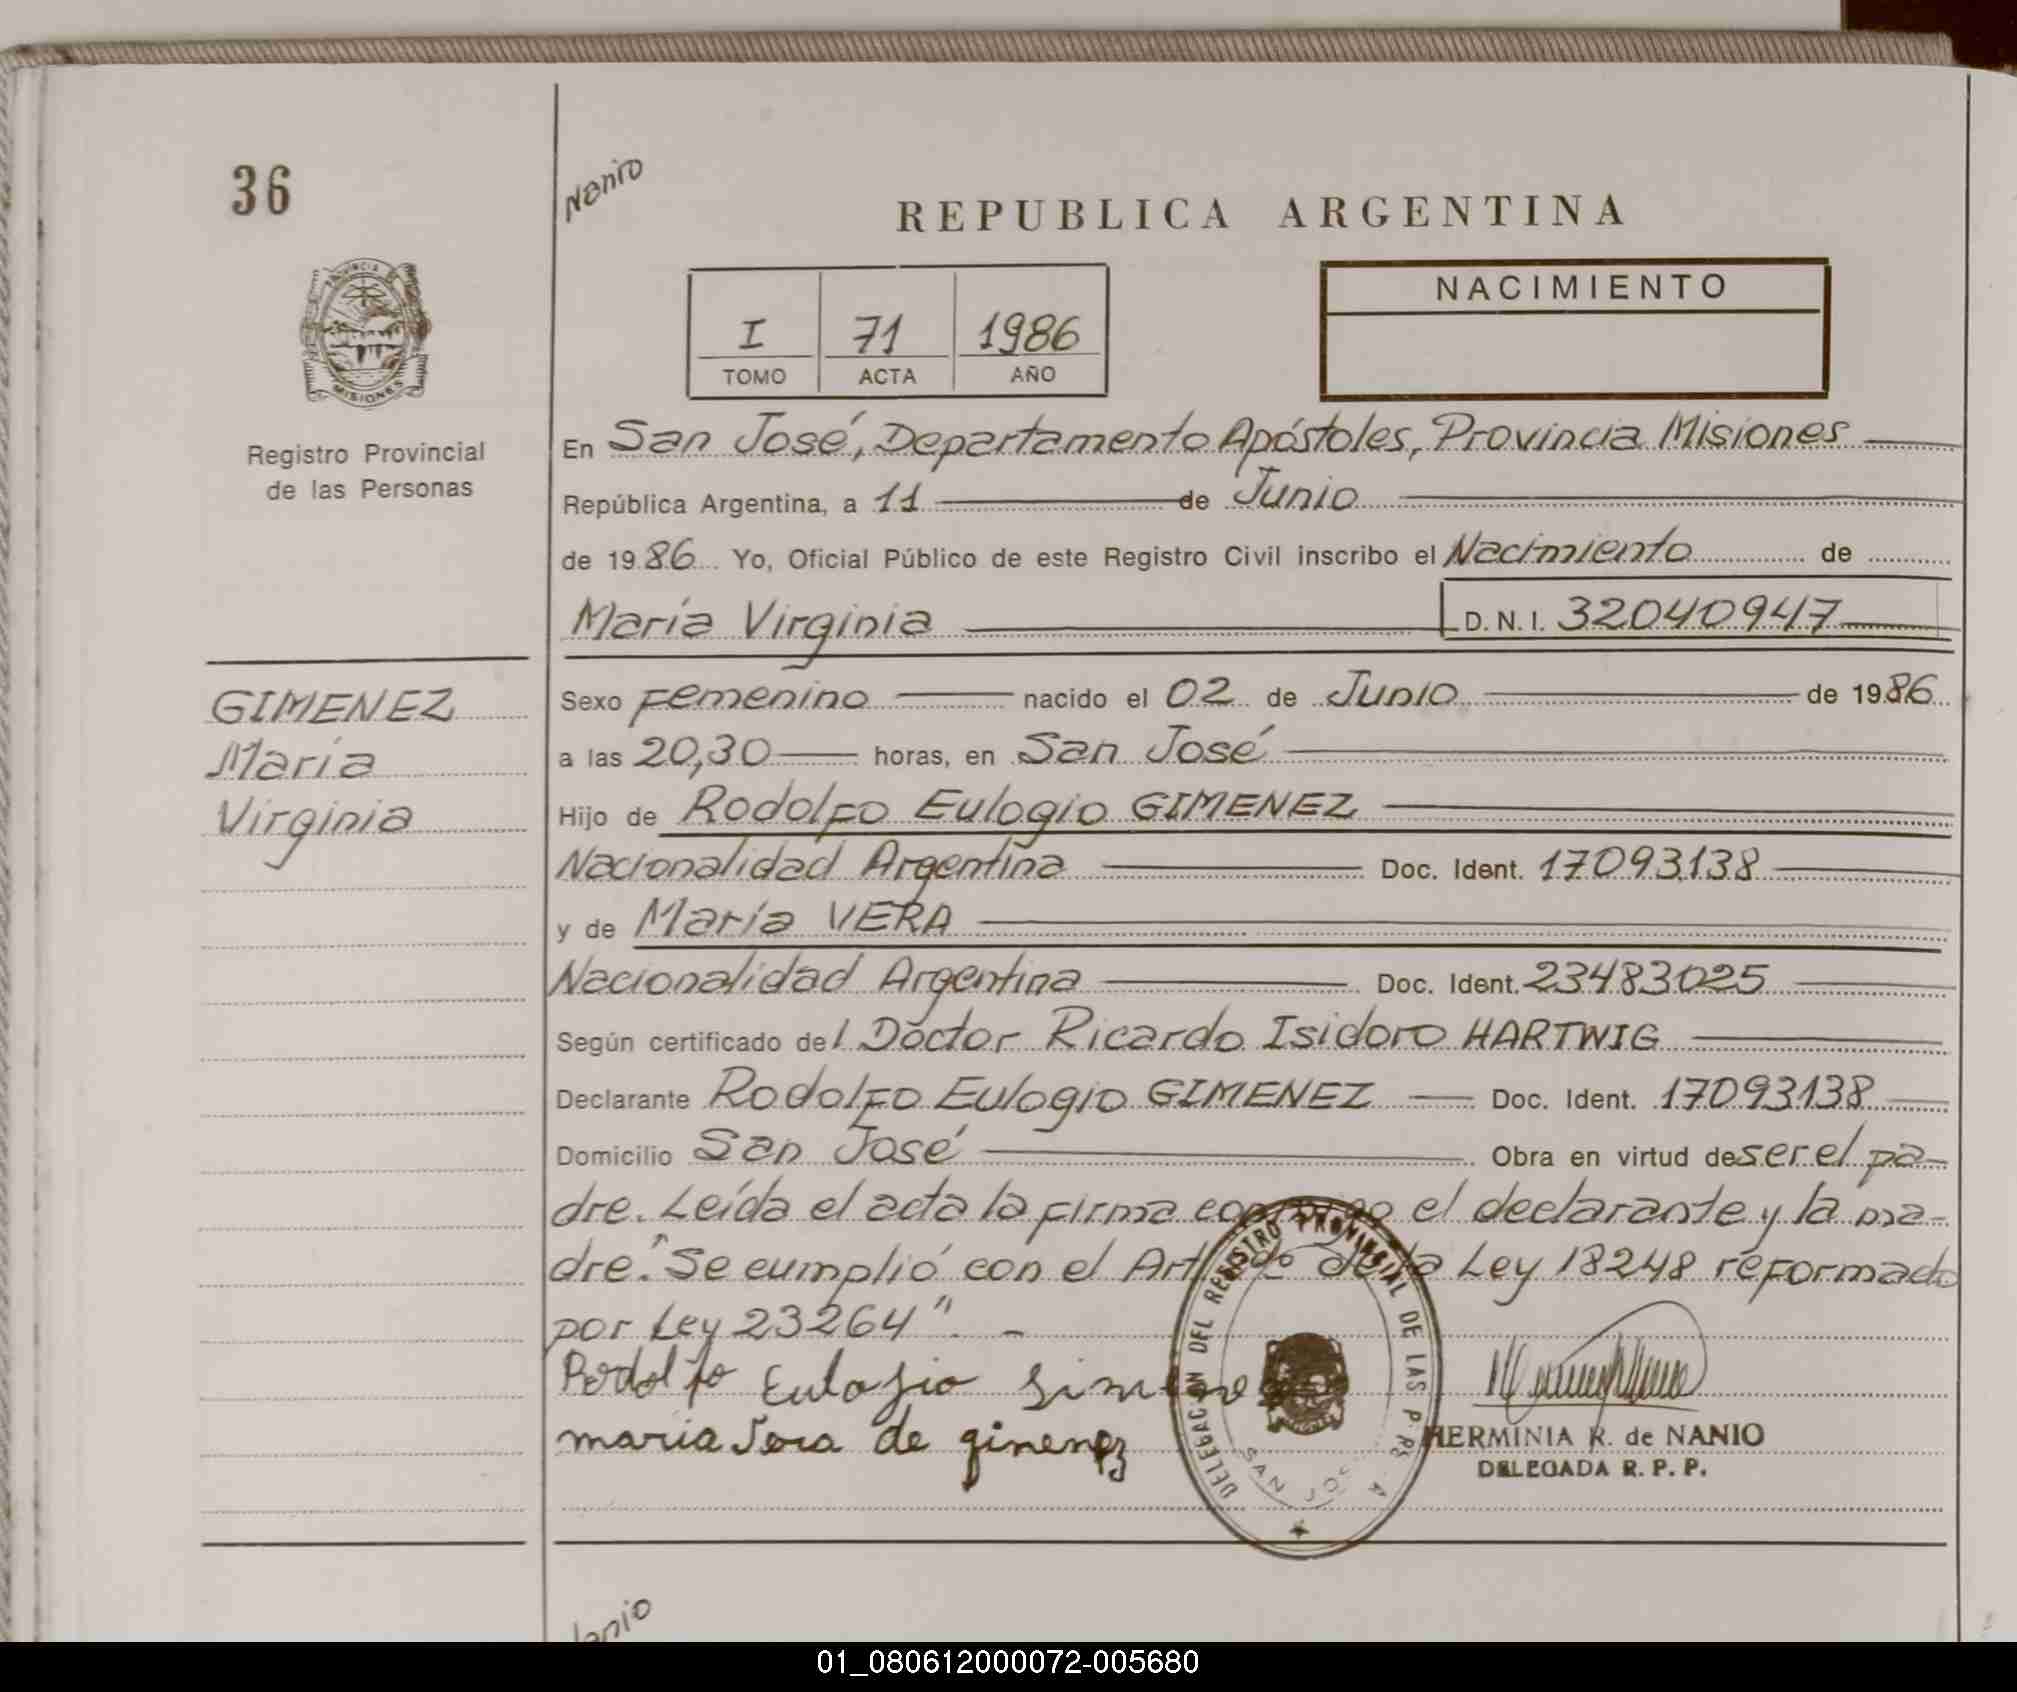 36
Nanio
REPUBLICA ARGENTINA
PROVINCIA DE MISIONES
Registro Provincial
de las Personas
I 71 1986
TOMO ACTA AÑO
NACIMIENTO
En San José, Departamento Apóstoles, Provincia Misiones
República Argentina, a 11 de Junio
de 1986 Yo, Oficial Público de este Registro Civil inscribo el Nacimiento de
María Virginia D. N. I. 32040947
GIMENEZ
María
Virginia
Sexo Femenino nacido el 02 de Junio de 1986
a las 20,30 horas, en San José
Hijo de Rodolfo Eulogio GIMENEZ
Nacionalidad Argentina Doc. Ident. 17093138
y de María VERA
Nacionalidad Argentina Doc. Ident. 23483025
Según certificado del Doctor Ricardo Isidoro HARTWIG
Declarante Rodolfo Eulogio GIMENEZ Doc. Ident. 17093138
Domicilio San José Obra en virtud de ser el pa-
dre. Leída el acta la firma conmigo el declarante y la ma-
dre. "Se cumplió con el Art. de la Ley 18248 reformado
por Ley 23264". -
Rodolfo Eulogio Gimenez
maria Vera de gimenez
DELEGACION DEL REGISTRO PROVINCIAL DE LAS
SAN JOSE
HERMINIA R. de NANIO
DELEGADA R. P. P.
Nanio
01_080612000072-005680